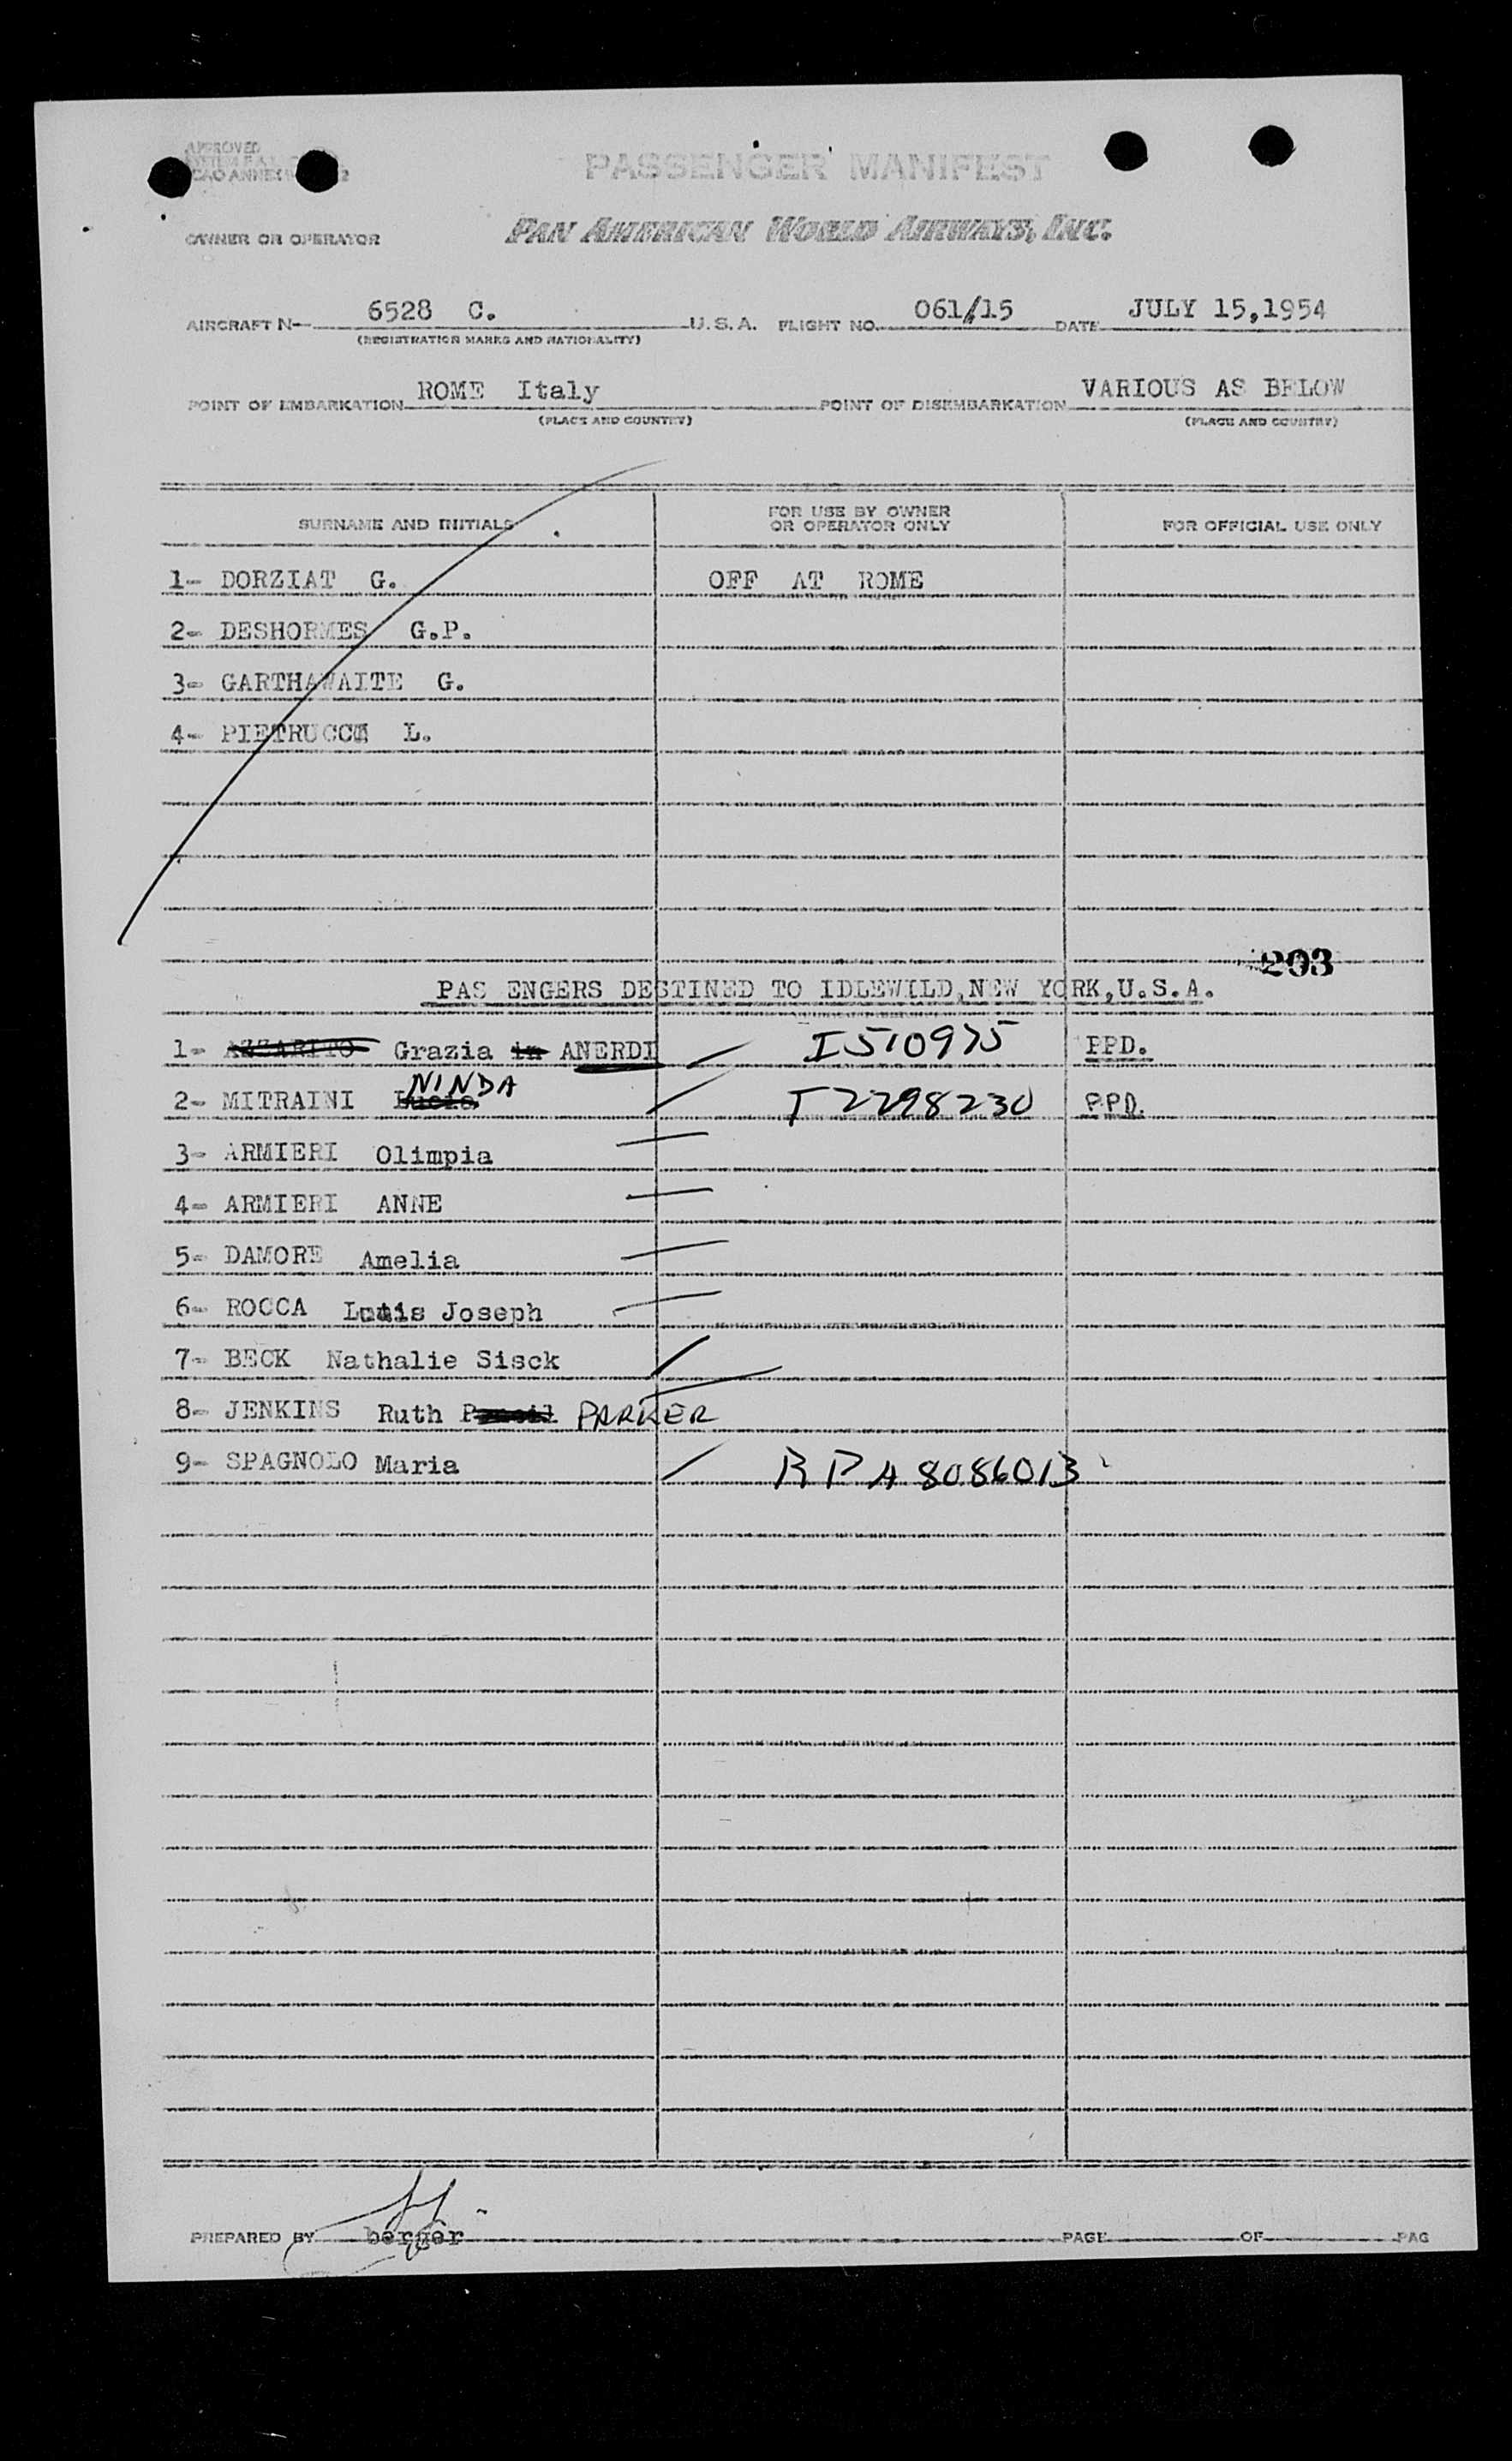 APPROVED
ICAO ANNEX 2
PASSENGER MANIFEST
OWNER OR OPERATOR PAN AMERICAN WORLD AIRWAYS, INC.
AIRCRAFT N- 6528 C. U.S.A. FLIGHT NO. 061/15 DATE JULY 15,1954
(REGISTRATION MARKS AND NATIONALITY)
POINT OF EMBARKATION ROME Italy POINT OF DISEMBARKATION VARIOUS AS BELOW
(PLACE AND COUNTRY) (PLACE AND COUNTRY)
SURNAME AND INITIALS FOR USE BY OWNER OR OPERATOR ONLY FOR OFFICIAL USE ONLY
1- DORZIAT G. OFF AT ROME
2- DESHORMES G.P.
3- GARTHAWAITE G.
4- PIETRUCCI L.
203
PAS ENGERS DESTINED TO IDLEWILD,NEW YORK,U.S.A.
1- AZZARITO Grazia in ANERDI I510975 PPD.
2- MITRAINI Lucia NINDA T2298230 PPD.
3- ARMIERI Olimpia
4- ARMIERI ANNE
5- DAMORE Amelia
6- ROCCA Joseph
7- BECK Nathalie Sisck
8- JENKINS Ruth PARKER
9- SPAGNOLO Maria RPA8086013
PREPARED BY berger PAGE OF PAG